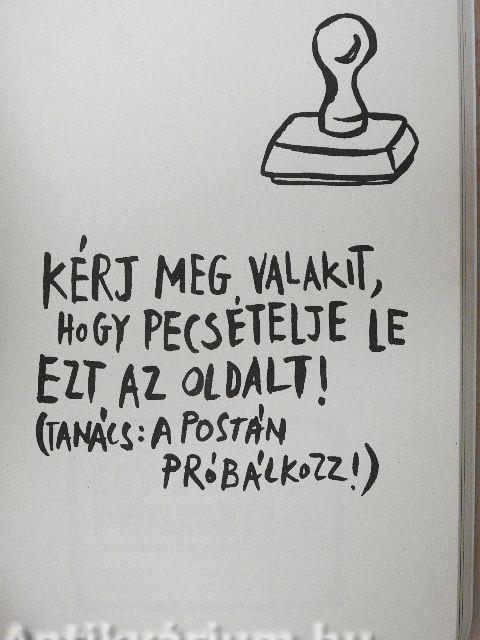 KÉRJ MEG VALAKIT,
HOGY PECSÉTELJE LE
EZT AZ OLDALT!
(TANÁCS: A POSTÁN
PRÓBÁLKOZZ!)
Antikvárium.hu